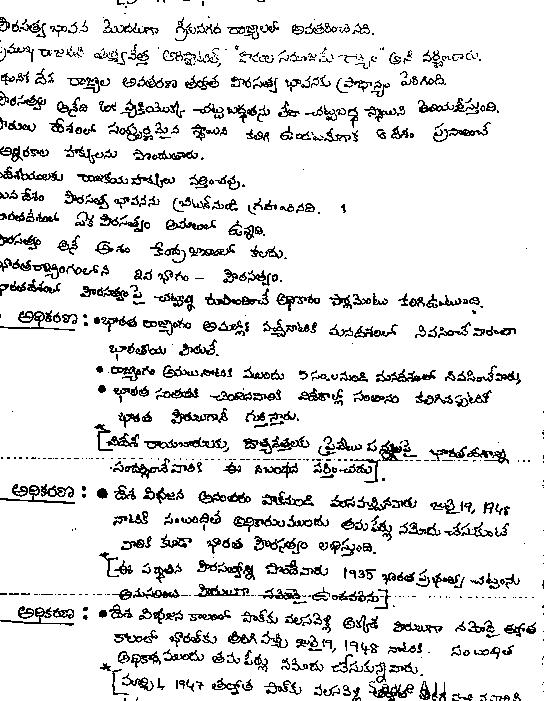 పౌరసత్వ భావన మొదటగా గ్రీకునగర రాజ్యాలలో అవతరించినది.
ప్రముఖ రాజనీతి తత్వవేత్త "అరిస్టాటిల్" "పౌరుల సముదాయమే రాజ్యం" అని వర్ణించాడు.
దేశ రాజ్యాల అవతరణ తర్వాత పౌరసత్వ భావనకు ప్రాధాన్యం పెరిగింది.
పౌరసత్వం అనేది ఒక వ్యక్తియొక్క చట్టబద్ధతను లేదా చట్టబద్ధ స్థాయిని తెలియజేస్తుంది.
పౌరులు దేశంలో సంపూర్ణమైన స్థాయిని కలిగి ఉండటమేగాక ఆ దేశం ప్రసాదించే
హక్కులను పొందుతారు.
విదేశీయులకు రాజకీయ హక్కులు వర్తించవు.
మన దేశం పౌరసత్వ భావనను బ్రిటన్ నుండి గ్రహించినది.
భారతదేశంలో ఏక పౌరసత్వం అమలులో ఉన్నది.
పౌరసత్వం అనే అంశం కేంద్ర జాబితాలో కలదు.
భారత రాజ్యాంగంలోని 2వ భాగం - పౌరసత్వం.
భారతదేశంలో పౌరసత్వంపై చట్టాన్ని రూపొందించే అధికారం పార్లమెంటు కలిగి ఉంటుంది.
అధికరణ : • భారత రాజ్యాంగం అమల్లోకి వచ్చేనాటికి మనదేశంలో నివసించే వారంతా
భారతీయ పౌరులే.
• రాజ్యాంగం అమలునాటికి ముందు 5 సం.ల నుండి మనదేశంలో నివసించేవారు,
• భారత సంతతికి చెందినవారికి విదేశాల్లో సంతానం కలిగినప్పటికీ
భారత పౌరులుగానే గుర్తిస్తారు.
* [విదేశీ రాయబారులకు, ప్రైవేటు భారతదేశాన్ని
సందర్శించేవారికి ఈ నిబంధన వర్తించదు]
అధికరణ : • దేశ విభజన అనంతరం పాక్ నుండి వలసవచ్చినవారు జులై 19, 1948
నాటికి సంబంధిత అధికారుల ముందు తమ పేర్లు నమోదు చేసుకుంటే
వారికి కూడా భారత పౌరసత్వం లభిస్తుంది.
* [ఈ పద్ధతిన పౌరసత్వాన్ని పొందేవారు 1935 భారత ప్రభుత్వ చట్టంను
అనుసరించి పౌరులుగా నమోదై ఉండవలెను]
అధికరణ : • దేశ విభజన కాలంలో పాక్ కు వలసవెళ్లి అక్కడ పౌరులుగా నమోదై తర్వాత
కాలంలో భారత్ కు తిరిగి వచ్చి జులై 19, 1948 నాటికి సంబంధిత
అధికారి ముందు తమ పేర్లు నమోదు చేసుకున్నవారు.
* [మార్చి 1, 1947 తర్వాత పాక్ కు వలసవెళ్లి